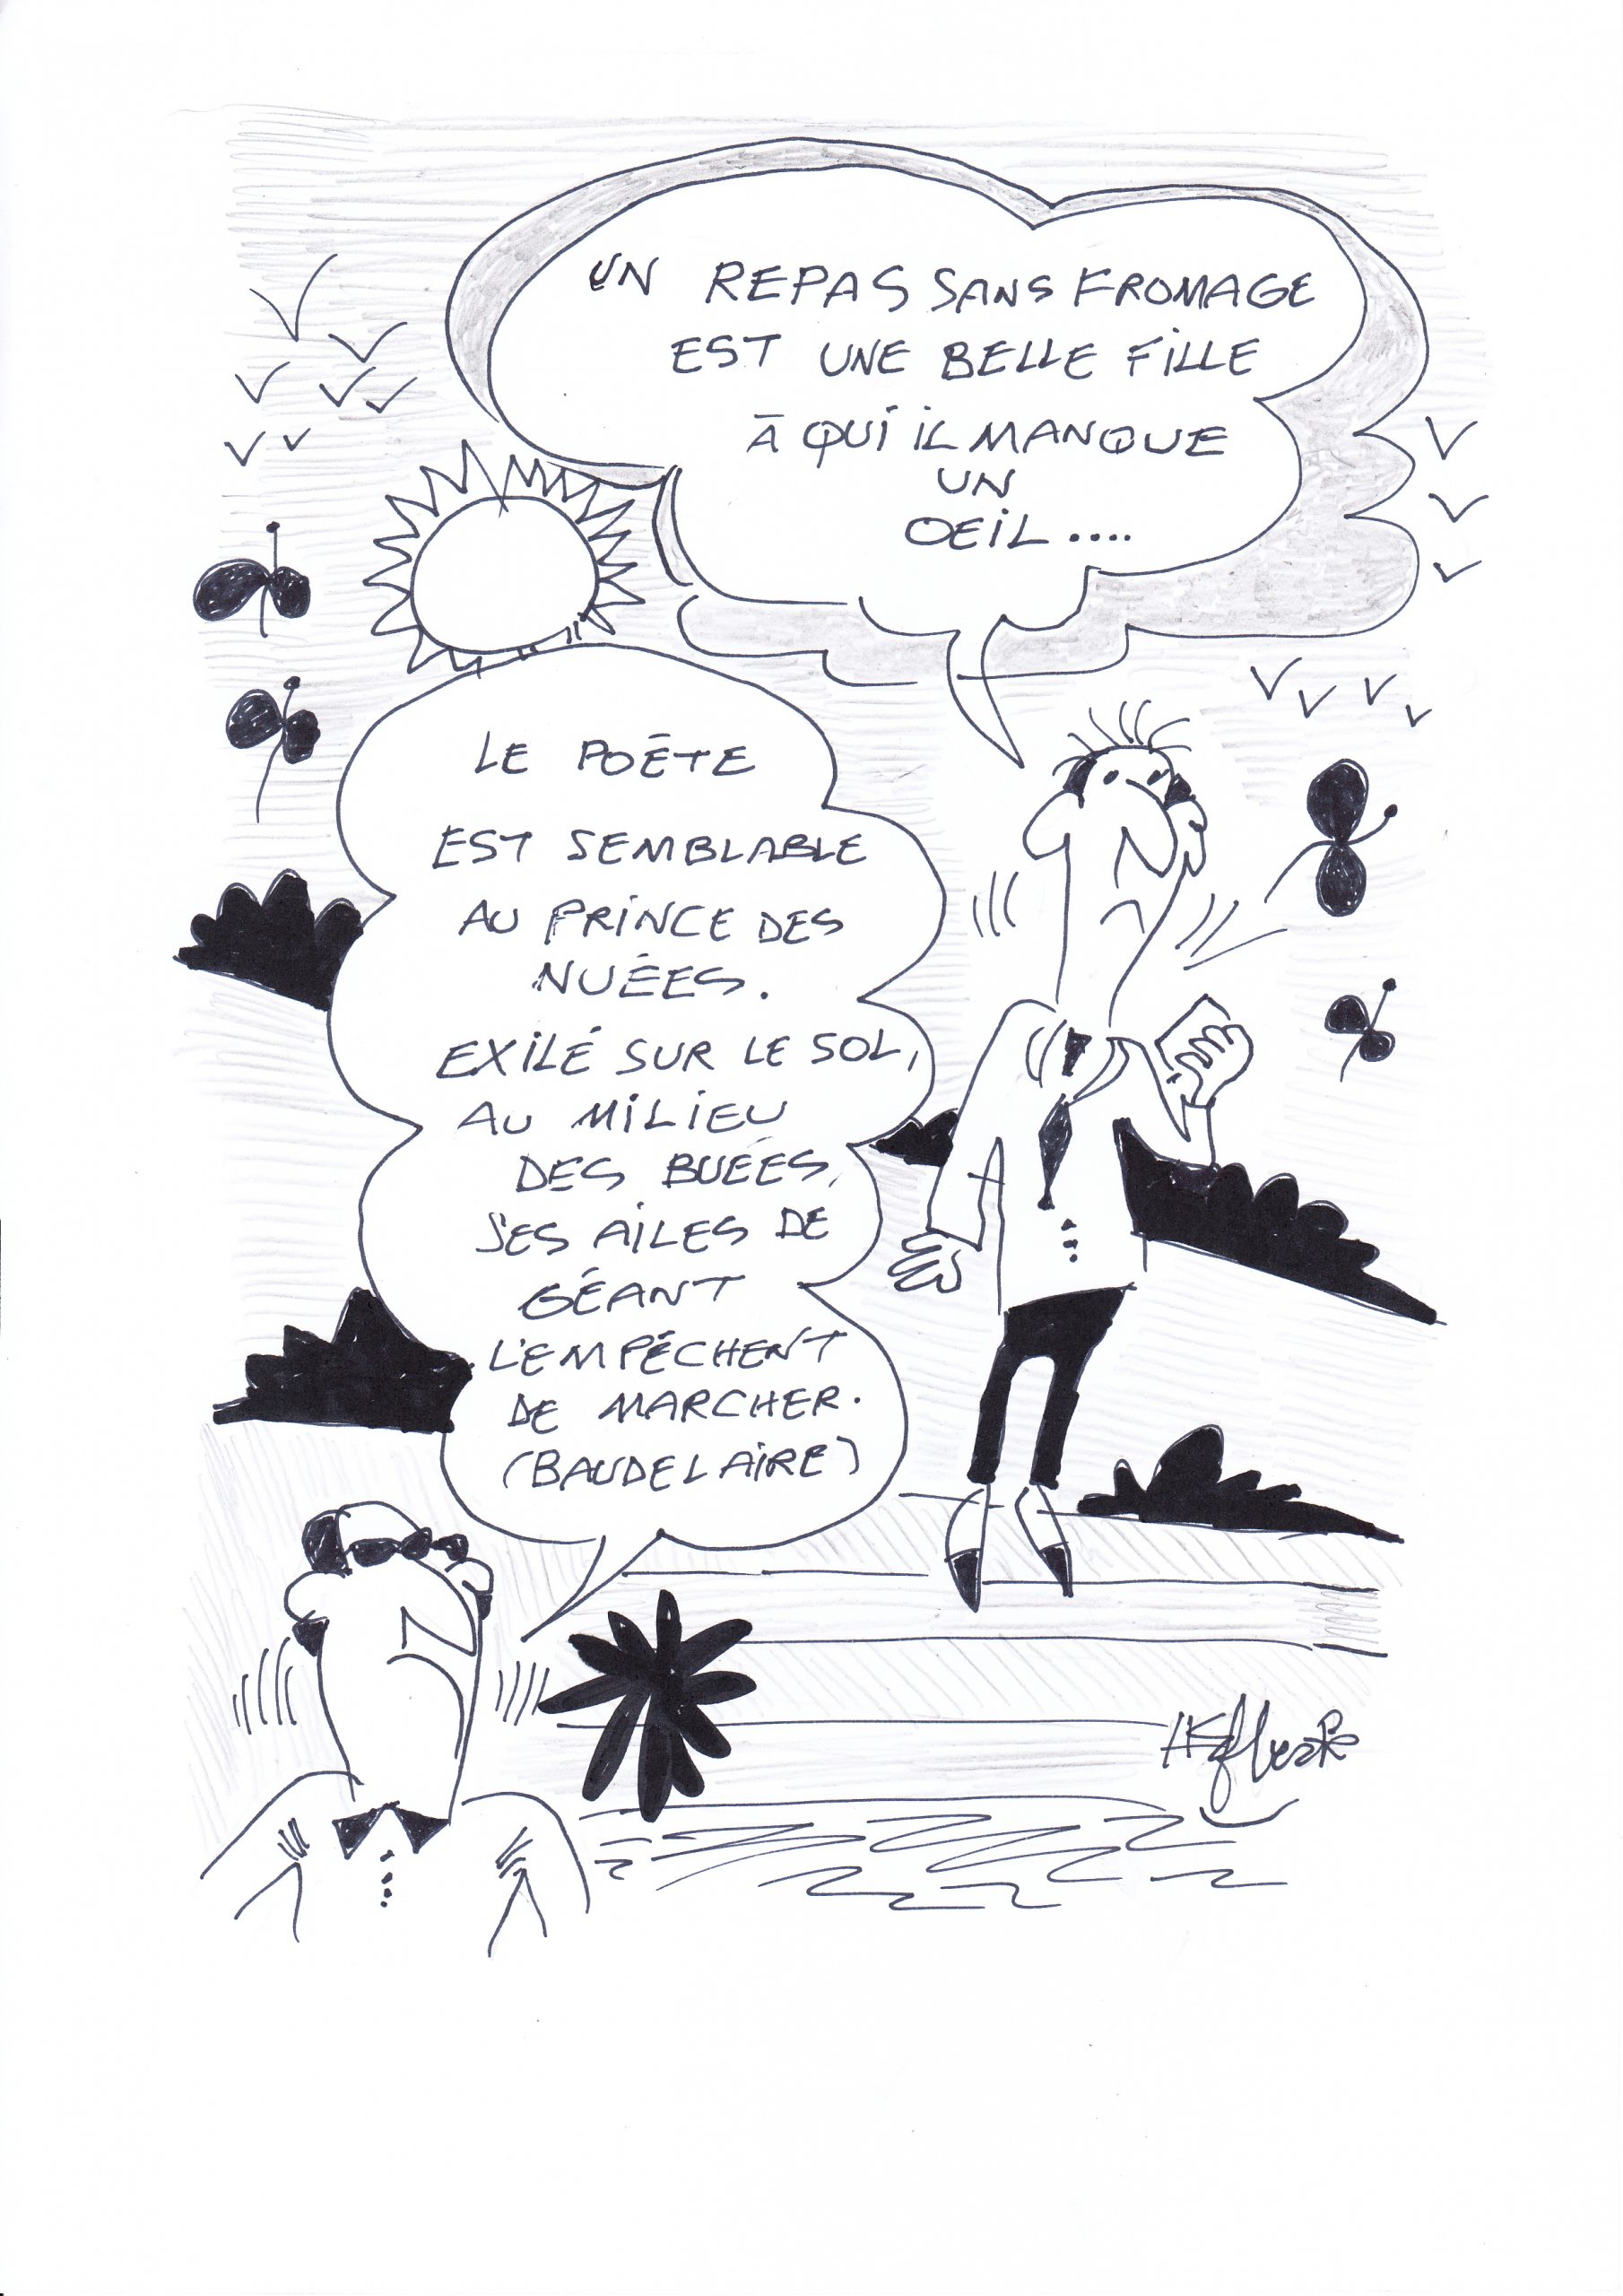 UN REPAS SANS FROMAGE
EST UNE BELLE FILLE
À QUI IL MANQUE
UN
OEIL....
LE POÈTE
EST SEMBLABLE
AU PRINCE DES
NUÉES.
EXILÉ SUR LE SOL,
AU MILIEU
DES BUÉES,
SES AILES DE
GÉANT
L'EMPÊCHENT
DE MARCHER.
(BAUDELAIRE)